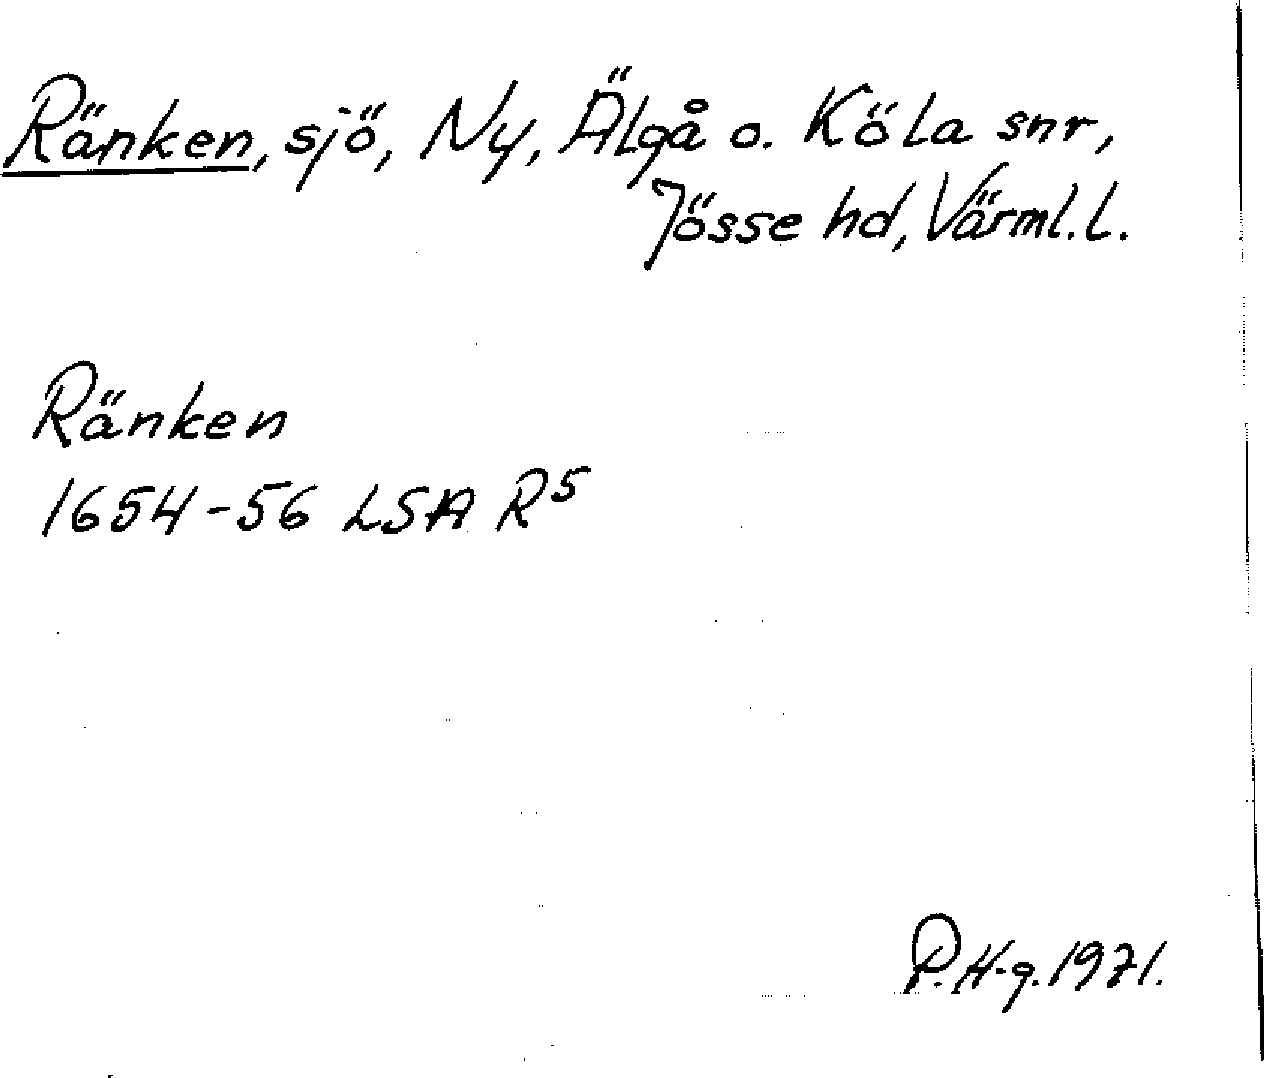 Ränken, sjö, Ny, Älgå o. Köla snr,
Jösse hd, Värml. l.
Ränken
1654-56 LSA R5
P. H-g. 1971.